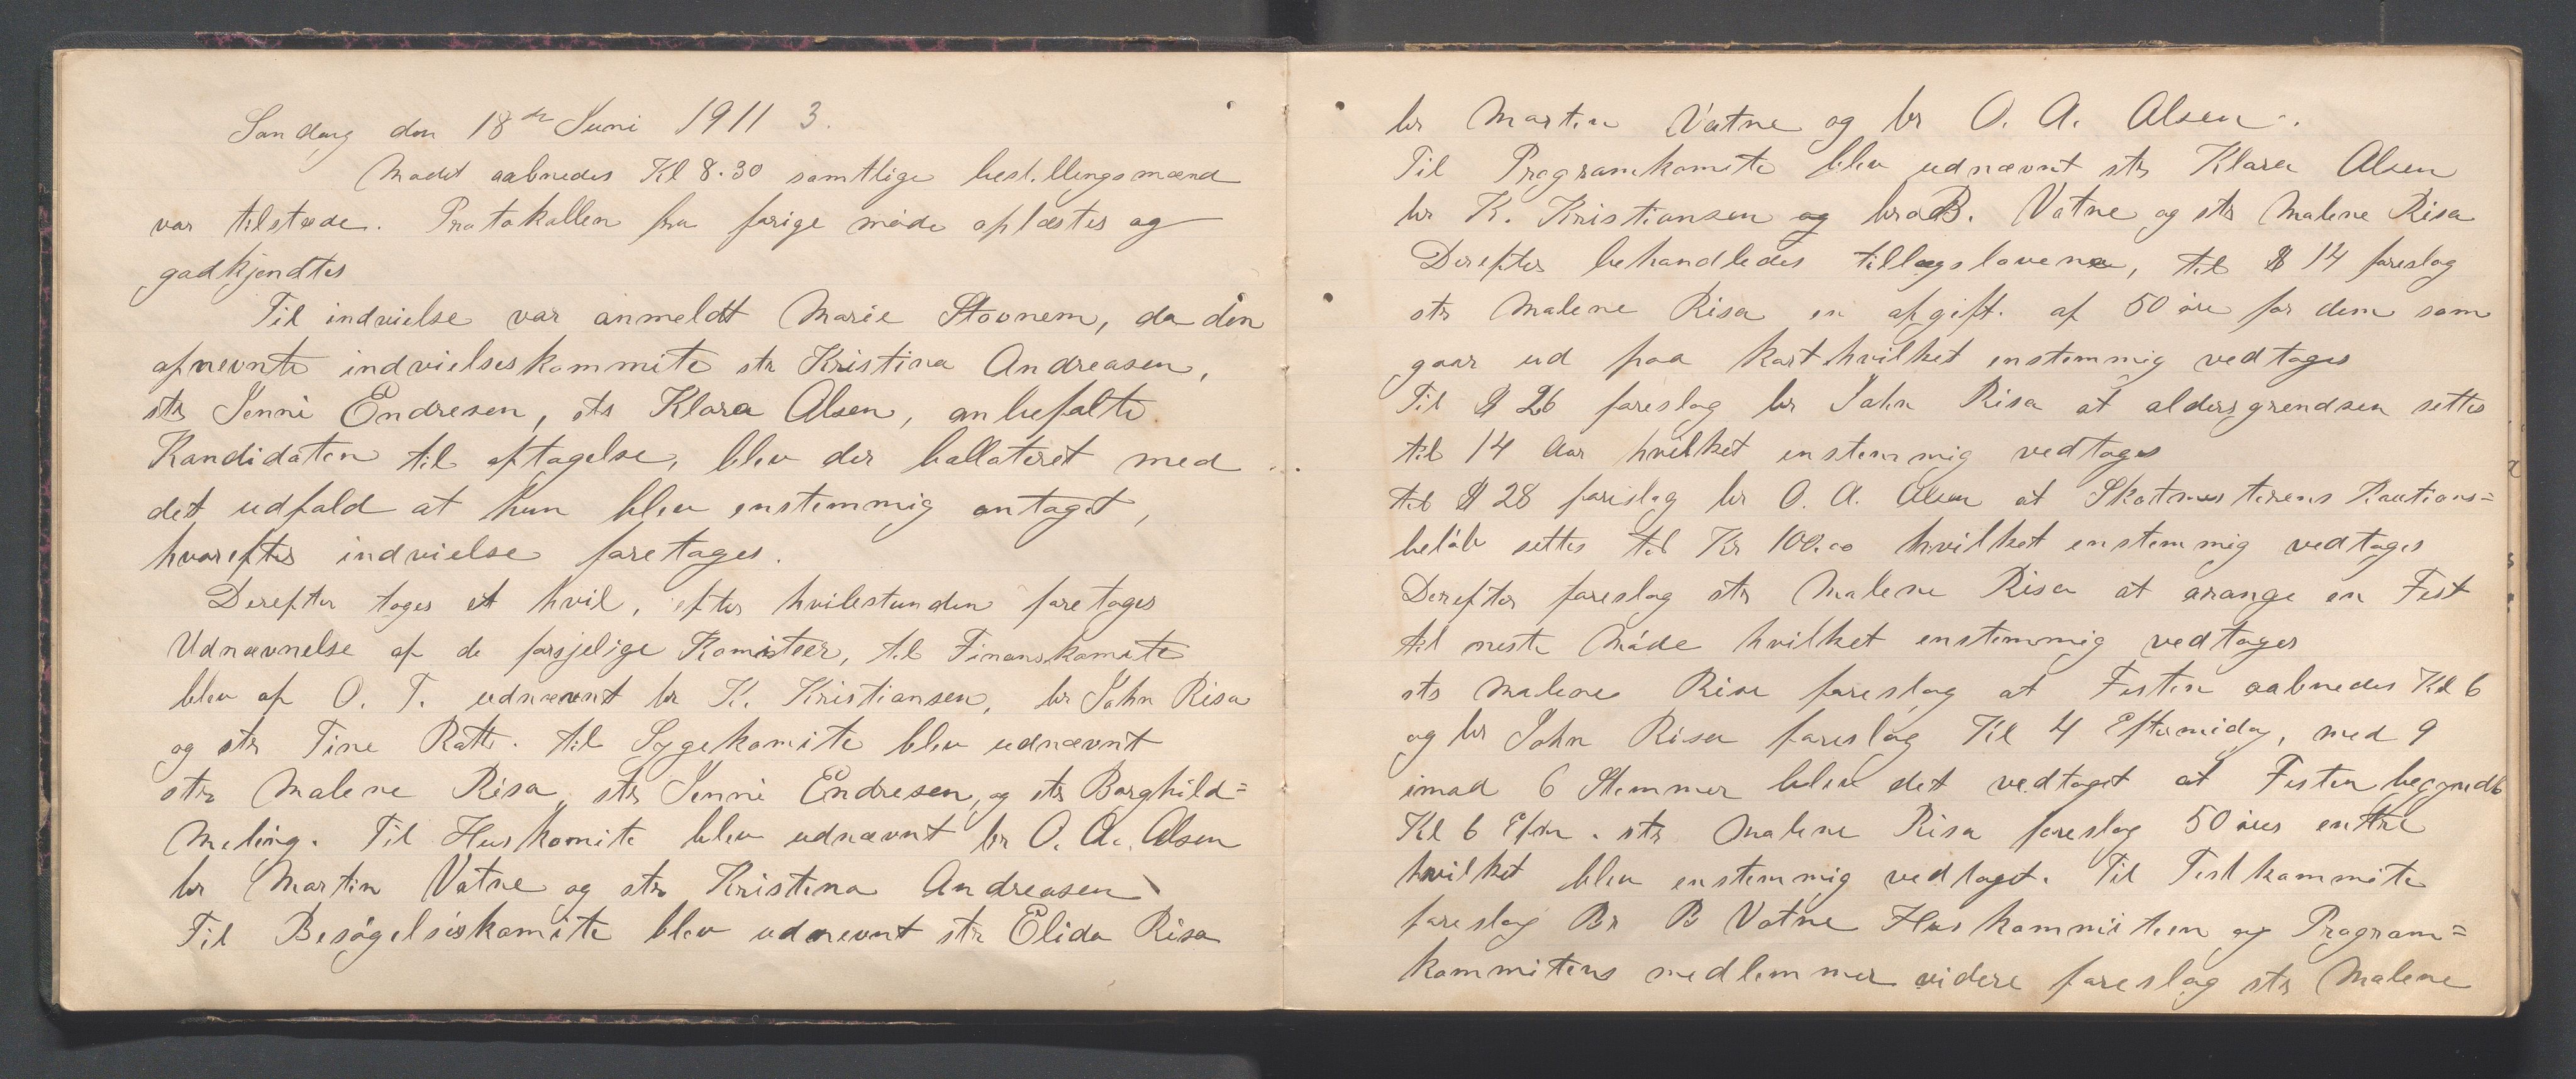 Søndag den 18de Juni 1911 3.
Mødet aabnedes Kl 8.30 samtlige bestillingsmænd
var tilstede. Protokollen fra forige møde oplæstes og
godkjendtes
Til indvielse var anmeldt Marie Stovnem, da den
opnevnte indvielseskommite str Kristina Andreasen,
str Jenni Endresen, str Klara Olsen, anbefalte
Kandidaten til optagelse, blev der ballateret med
det udfald at hun blev enstemmig antaget,
hvorefter indvielse foretages.
Derefter toges et hvil, efter hvilestunden foretoges
Udnævnelse af de forsjelige Komiteer, til Finanskomite
blev af O. T. udnævnt br K. Kristiansen, br John Risa
og str Tine Rotti. til Sygekomite blev udnævnt
str Malene Risa, str Jenni Endresen, og str Borghild=
Meling. Til Huskomite blev udnævnt br O. A. Olsen
br Martin Vatne og str Kristina Andreasen
Til Besøgelseskomite blev udnevnt str Elida Risa
br Martin Vatne og br O. A. Olsen.
Til Programkomite blev udnævnt str Klara Olsen
br K. Kristiansen og bro B. Vatne og str Malene Risa
Derefter behandledes tillægslovene, til § 14 foreslog
str Malene Risa en afgift af 50 øre for dem som
gaar ud paa kort hvilket enstemmig vedtoges
Til § 26 foreslog br John Risa at aldersgrendsen settes
til 14 Aar hvilket enstemmig vedtoges
til § 28 foreslog br O. A. Olsen at Skatmesterens Kautions=
beløb settes til Kr 100.00 hvilket enstemmig vedtoges
Derefter foreslog str Malene Risa at arange en Fest
til neste Møde hvilket enstemmig vedtoges
str Malene Risa foreslog at Festen aabnedes Kl 6
og br John Risa foreslog Kl 4 Eftermidag, med 9
imod 6 Stemmer blev det vedtaget at Festen begyndte
Kl 6 Efm. str Malene Risa foreslog 50 øres entre
hvilket blev enstemmig vedtaget. Til Festkommite
foreslog Br B Vatne Huskommiteen og Program=
kommitens medlemmer videre foreslog str Malene